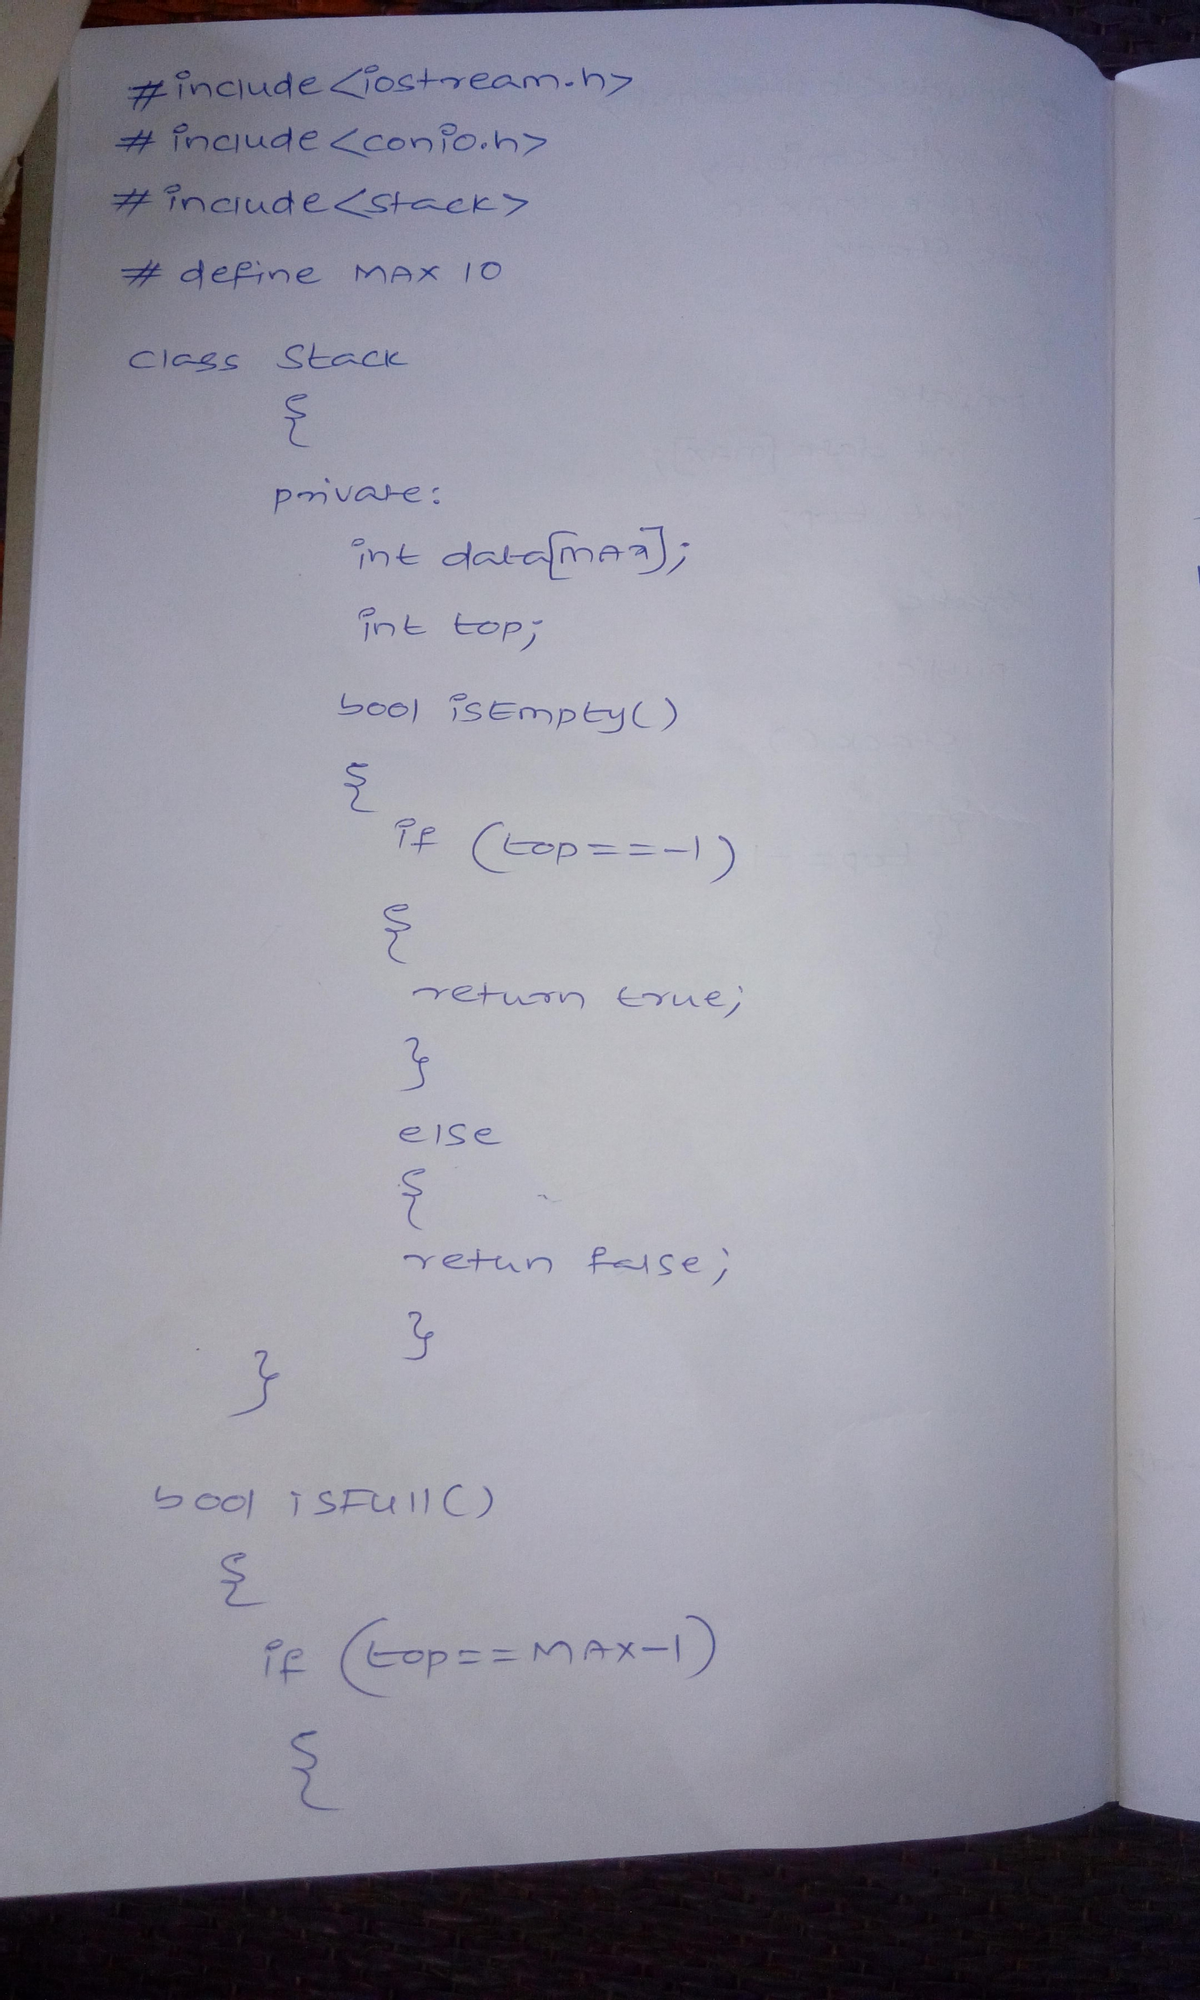 #include<iostream.h>
# include<conio.h>
# include<stack>
# define MAX 10
class Stack
{
private:
int data[MAX];
int top;
bool isEmpty()
{
if (top==-1)
{
return true;
}
else
{
retun false;
}
}
bool isFull()
{
if (top==MAX-1)
{